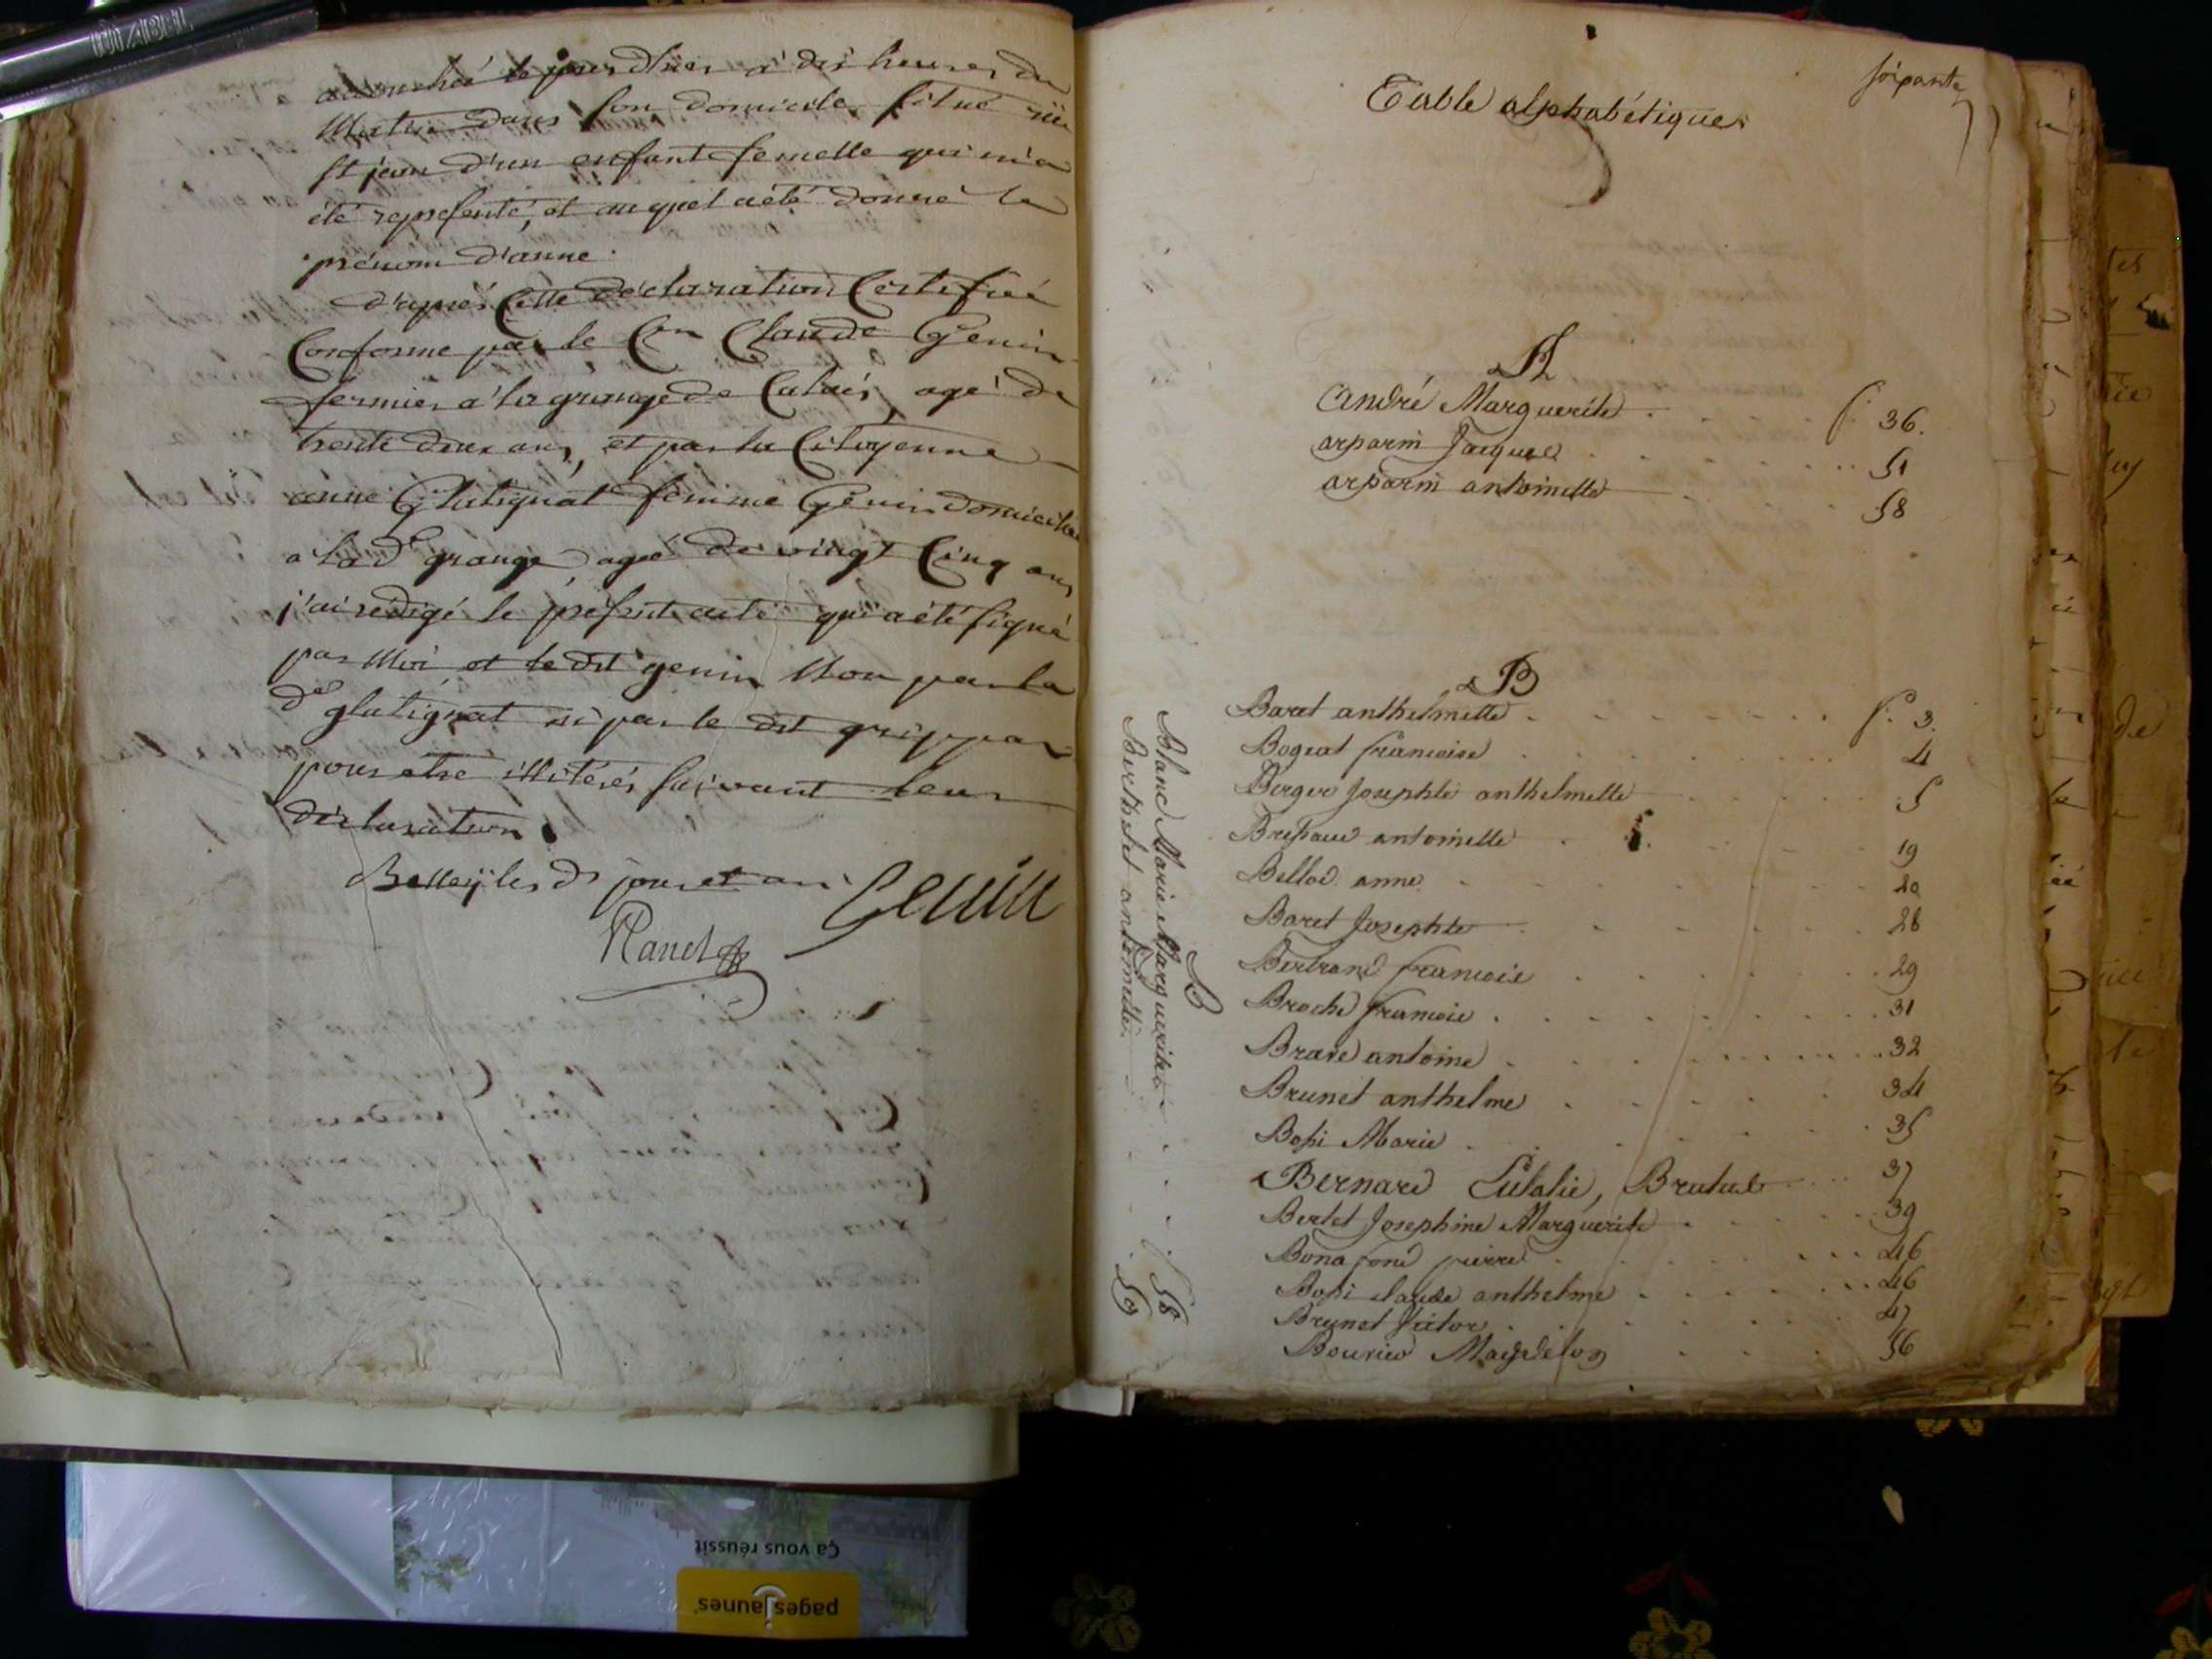 accouchée le jour d'hier à dix heures du
Matin dans son domicile, situé rüe
St jean d'un enfant femelle qui m'a
été representé, et auquel a été donné le
prénom d'anne.
d'aprés Cette déclaration Certifiée
Conforme par le Cen Claude Genin
fermier a la grange de Calais, agé de
trente deux ans, et par la Citoyenne
anne Glutignat femme Genin domiciliée
a la de grange, agé de vingt Cinq ans
j'ai rédigé le présent acte qui a été signé
par Moi et le dit genin Non par la
de glutignat ni par le dit
pour etre illitérés suivant leur
déclaration
Belleÿ les ds jour et an
Genin
Table alphabétique
soixante
A
André Marguerite . f. 36.
arparin Jacques . . . . 51
arparin antoinette . . 58
B
Baret anthelmette . . . . f.o 3.
Bogeat francoise . . . . 4
Berger Josephte anthelmette . . . 5
antoinette . . . 19
Bellod anne . . . . 20
Baret Josephte . . . . 28
Bertrand francoise . . . . 29
Broche francoise . . . . 31
Brave antoine . . . . 32
Brunet anthelme . . . . 34
Bossi Marie . . . . 35
Bernard Eulalie, Brutus . . . 37
Bertet Josephine Marguerite . . . 39
Bonafond pierre . . . . 46
Bossi claude anthelme . . . . 46
Brunet Victor . . . . 47
Bouvier Magdelon . . . 56
B
Blanc Marie Marguerite . . . . 58
Berthelet antoinette . . . . 59
Ça vous réussit
pagesJaunes